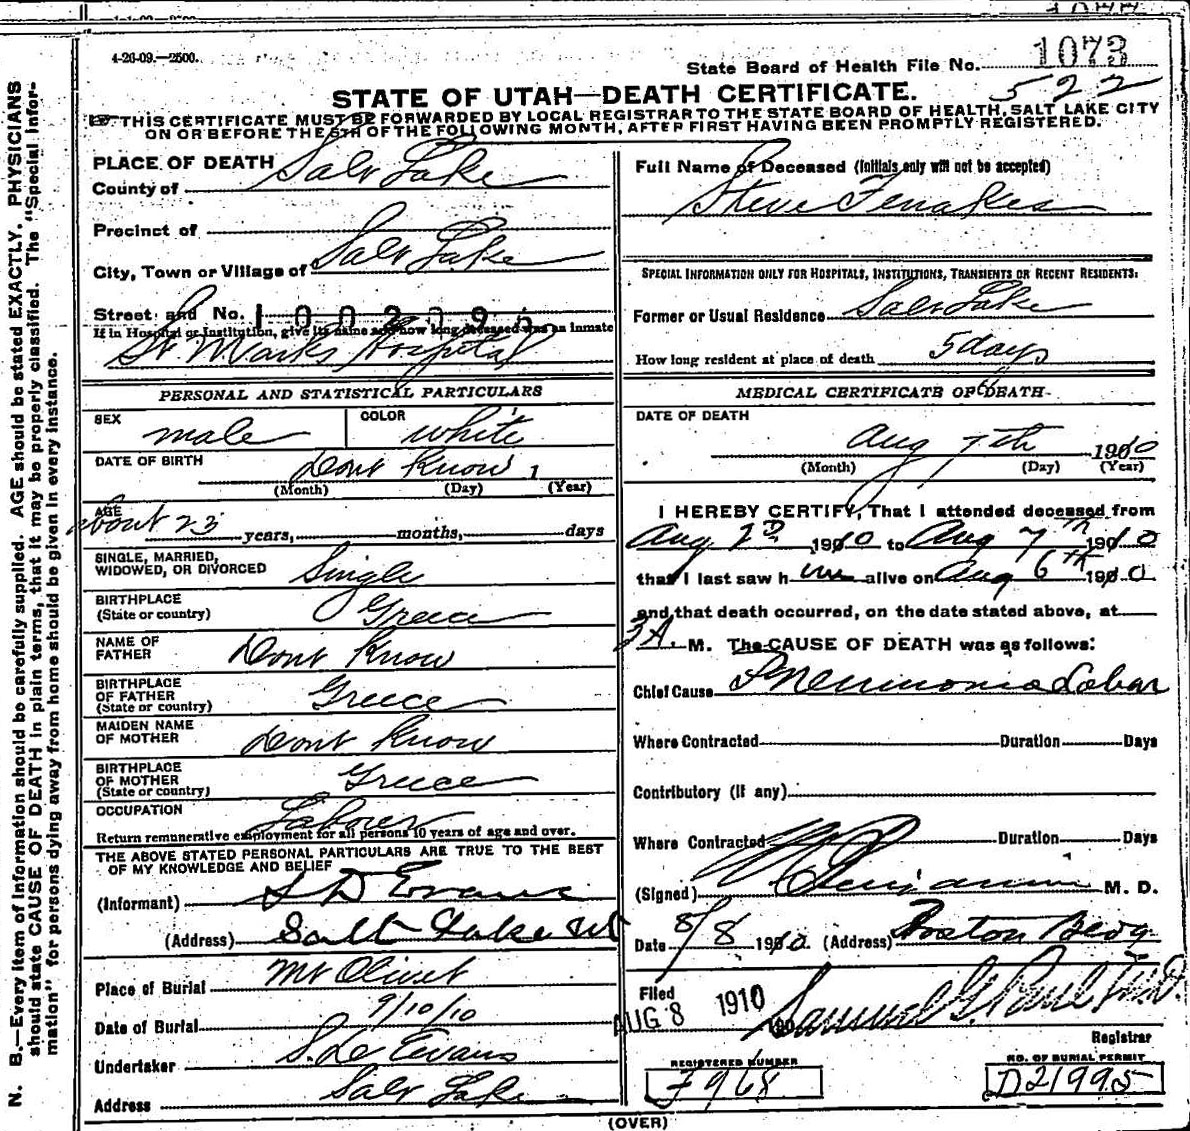 4-26-09.—2500.
State Board of Health File No. 1073
522
STATE OF UTAH—DEATH CERTIFICATE.
THIS CERTIFICATE MUST BE FORWARDED BY LOCAL REGISTRAR TO THE STATE BOARD OF HEALTH, SALT LAKE CITY
ON OR BEFORE THE 5TH OF THE FOLLOWING MONTH, AFTER FIRST HAVING BEEN PROMPTLY REGISTERED.
N. B.—Every item of information should be carefully supplied. AGE should be stated EXACTLY. PHYSICIANS
should state CAUSE OF DEATH in plain terms, that it may be properly classified. The "Special Infor-
mation" for persons dying away from home should be given in every instance.
PLACE OF DEATH
County of Salt Lake
Precinct of
City, Town or Village of Salt Lake
Street and No. 1002095
If in Hospital or Institution, give its name and how long deceased was an inmate
St Marks Hospital
PERSONAL AND STATISTICAL PARTICULARS
SEX male COLOR white
DATE OF BIRTH Dont Know 1
(Month) (Day) (Year)
AGE
about 23 years, months, days
SINGLE, MARRIED,
WIDOWED, OR DIVORCED Single
BIRTHPLACE
(State or country) Greece
NAME OF
FATHER Dont Know
BIRTHPLACE
OF FATHER
(State or country) Greece
MAIDEN NAME
OF MOTHER Dont Know
BIRTHPLACE
OF MOTHER
(State or country) Greece
OCCUPATION Laborer
Return remunerative employment for all persons 10 years of age and over.
THE ABOVE STATED PERSONAL PARTICULARS ARE TRUE TO THE BEST
OF MY KNOWLEDGE AND BELIEF
(Informant) S D Evans
(Address) Salt Lake Ut
Place of Burial Mt Olivet
Date of Burial 9/10/10
Undertaker S. D. Evans
Address Salt Lake
Full Name of Deceased (Initials only will not be accepted)
Steve Fenakes
SPECIAL INFORMATION ONLY FOR HOSPITALS, INSTITUTIONS, TRANSIENTS OR RECENT RESIDENTS:
Former or Usual Residence Salt Lake
How long resident at place of death 5 days
MEDICAL CERTIFICATE OF DEATH
DATE OF DEATH
Aug 7th 1910
(Month) (Day) (Year)
I HEREBY CERTIFY, That I attended deceased from
Aug 2D 1910 to Aug 7th 1910
that I last saw him alive on Aug 6th 1910
and that death occurred, on the date stated above, at
3 A. M. The CAUSE OF DEATH was as follows:
Chief Cause Pneumonia Lobar
Where Contracted Duration Days
Contributory (if any)
Where Contracted Duration Days
(Signed) Benjamin M. D.
Date 8/8 1910 (Address) Boston Bldg
Filed
AUG 8 1910 190 Samuel G. Paul M.D.
Registrar
REGISTERED NUMBER
F968
NO. OF BURIAL PERMIT
D21995
(OVER)